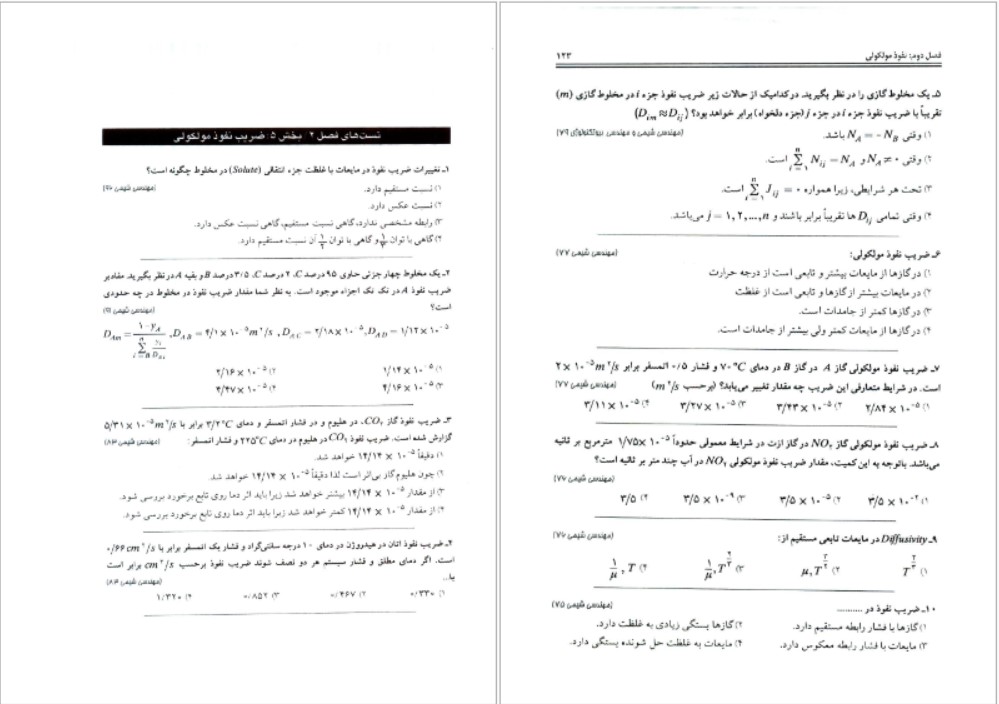 تست‌های فصل ۲ بخش ۵: ضریب نفوذ مولکولی
۱ـ تغییرات ضریب نفوذ در مایعات با غلظت جزء انتقالی (Solute) در مخلوط چگونه است؟
(مهندسی شیمی ۹۰)
۱) نسبت مستقیم دارد.
۲) نسبت عکس دارد.
۳) رابطه مشخصی ندارد، گاهی نسبت مستقیم، گاهی نسبت عکس دارد.
۴) گاهی با توان و گاهی با توان آن نسبت مستقیم دارد.
۲ـ یک مخلوط چهار جزئی حاوی ۹۵ درصد C، ۲ درصد C، ۳/۵ درصد B و بقیه A در نظر بگیرید. مقادیر
ضریب نفوذ A در تک تک اجزاء موجود است. به نظر شما مقدار ضریب نفوذ در مخلوط در چه حدودی
است؟
D_AB = ۴/۱ × ۱۰⁻⁵ m²/s , D_AC = ۲/۱۸ × ۱۰⁻⁵ , D_AD = ۱/۱۲ × ۱۰⁻⁵
۱) ۱/۱۴ × ۱۰⁻⁵ ۲) ۲/۱۶ × ۱۰⁻⁵
۳) ۴/۱۶ × ۱۰⁻⁵ ۴) ۴/۴۷ × ۱۰⁻⁵
۳ـ ضریب نفوذ گاز CO₂، در هلیوم و در فشار اتمسفر و دمای ۳/۲°C برابر با ۵/۳۱ × ۱۰⁻⁵ m²/s
گزارش شده است. ضریب نفوذ CO₂ در هلیوم در دمای ۲۲۵°C و فشار اتمسفر: (مهندسی شیمی ۸۴)
۱) دقیقاً ۱۴/۱۴ × ۱۰⁻⁵ خواهد شد.
۲) چون هلیوم گاز بی‌اثر است لذا دقیقاً ۱۴/۱۴ × ۱۰⁻⁵ خواهد شد.
۳) از مقدار ۱۴/۱۴ × ۱۰⁻⁵ بیشتر خواهد شد زیرا باید اثر دما روی تابع برخورد بررسی شود.
۴) از مقدار ۱۴/۱۴ × ۱۰⁻⁵ کمتر خواهد شد زیرا باید اثر دما روی تابع برخورد بررسی شود.
۴ـ ضریب نفوذ اتان در هیدروژن در دمای ۱۰ درجه سانتی‌گراد و فشار یک اتمسفر برابر با ۰/۶۶ cm²/s
است. اگر دمای مطلق و فشار سیستم هر دو نصف شوند ضریب نفوذ برحسب cm²/s برابر است
با... (مهندسی شیمی ۸۴)
۱) ۰/۳۳۰ ۲) ۰/۴۶۷ ۳) ۰/۸۵۲ ۴) ۱/۳۲۰
فصل دوم: نفوذ مولکولی ۱۲۳
۵ـ یک مخلوط گازی را در نظر بگیرید. در کدامیک از حالات زیر ضریب نفوذ جزء i در مخلوط گازی (m)
تقریباً با ضریب نفوذ جزء i در جزء j (جزء دلخواه) برابر خواهد بود؟ (D_im ≈ D_ij) (مهندسی شیمی و مهندسی بیوتکنولوژی ۷۹)
۱) وقتی N_A = −N_B باشد.
۲) وقتی N_A ≠ ۰ و Σ N_ij = N_A است.
۳) تحت هر شرایطی، زیرا همواره Σ J_ij = ۰ است.
۴) وقتی تمامی D_ij ها تقریباً برابر باشند و j = ۱, ۲, ..., n می‌باشد.
۶ـ ضریب نفوذ مولکولی: (مهندسی شیمی ۷۷)
۱) در گازها از مایعات بیشتر و تابعی است از درجه حرارت
۲) در مایعات بیشتر از گازها و تابعی است از غلظت
۳) در گازها کمتر از جامدات است.
۴) در گازها از مایعات کمتر ولی بیشتر از جامدات است.
۷ـ ضریب نفوذ مولکولی گاز A در گاز B در دمای ۷۰°C و فشار ۰/۵ اتمسفر برابر ۲ × ۱۰⁻⁵ m²/s
است. در شرایط متعارفی این ضریب چه مقدار تغییر می‌یابد؟ (برحسب m²/s) (مهندسی شیمی ۷۷)
۱) ۲/۸۴ × ۱۰⁻⁵ ۲) ۳/۴۳ × ۱۰⁻⁵ ۳) ۳/۲۷ × ۱۰⁻⁵ ۴) ۳/۱۱ × ۱۰⁻⁵
۸ـ ضریب نفوذ مولکولی گاز NO₂ در گاز ازت در شرایط معمولی حدوداً ۱/۷۵ × ۱۰⁻⁵ مترمربع بر ثانیه
می‌باشد. باتوجه به این کمیت، مقدار ضریب نفوذ مولکولی NO₂ در آب چند متر بر ثانیه است؟
(مهندسی شیمی ۷۷)
۱) ۳/۵ × ۱۰⁻² ۲) ۳/۵ × ۱۰⁻⁵ ۳) ۳/۵ × ۱۰⁻⁹ ۴) ۳/۵
۹ـ Diffusivity در مایعات تابعی مستقیم از: (مهندسی شیمی ۷۶)
۱۰ـ ضریب نفوذ در .......... (مهندسی شیمی ۷۵)
۱) گازها با فشار رابطه مستقیم دارد. ۲) گازها بستگی زیادی به غلظت دارد.
۳) مایعات با فشار رابطه معکوس دارد. ۴) مایعات به غلظت حل شونده بستگی دارد.